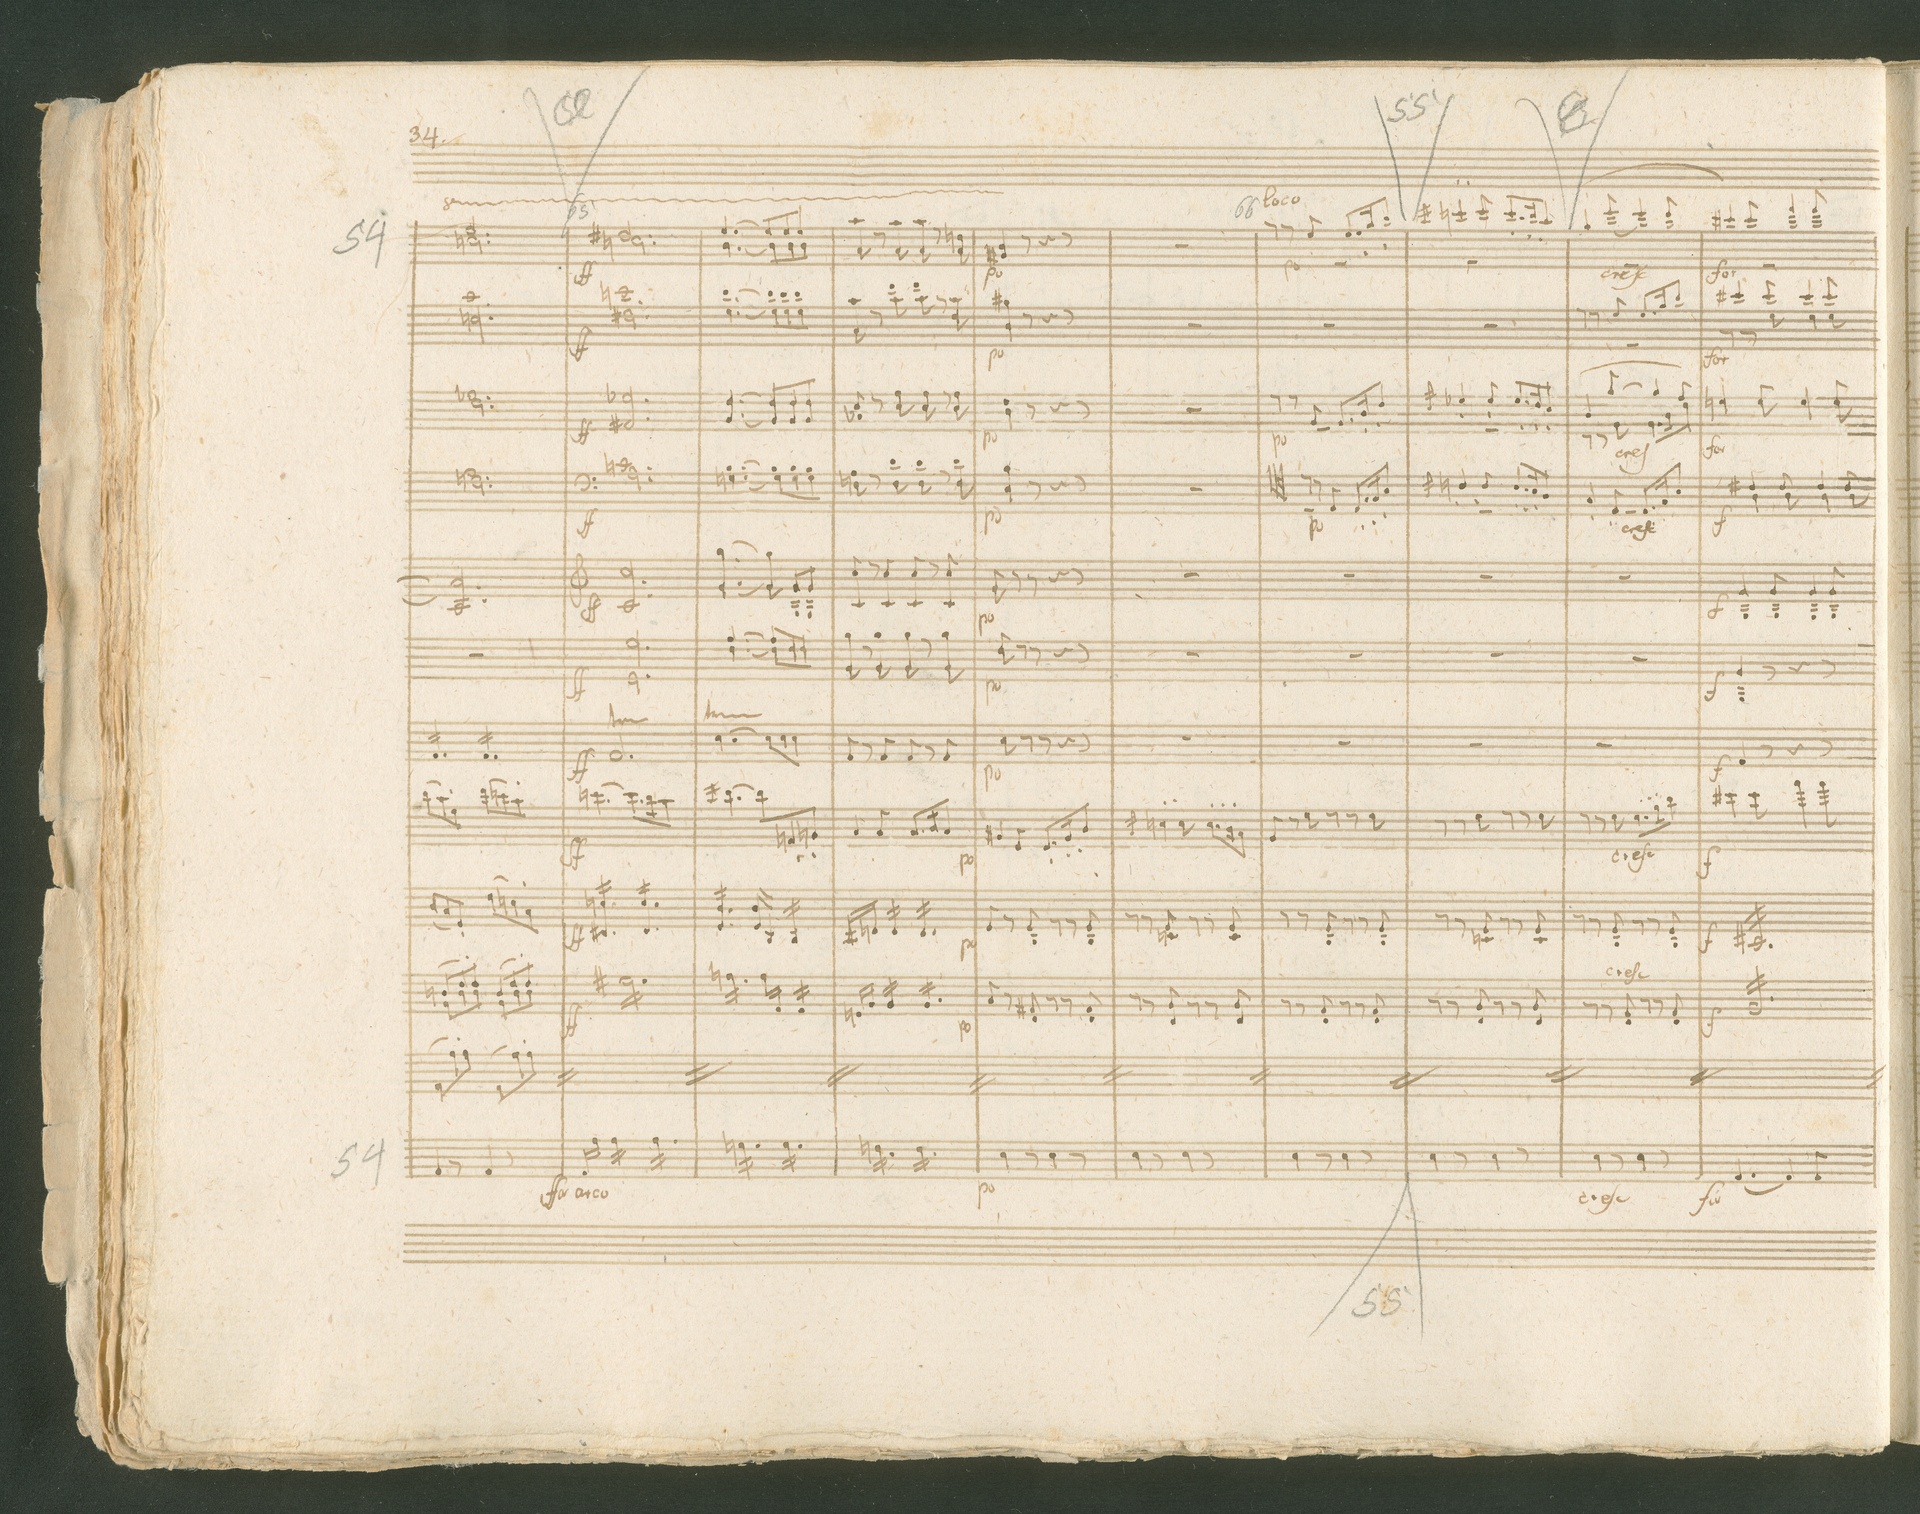 34.
55
54
65
66 loco
po
cresc
for
ff
for
ff
po
ff
po
po
cres
for
ff
po
po
cresc
f
ff
po
f
ff
po
f
ff
po
f
ff
po
cresc
f
ff
po
f
cresc
ff
po
f
54
ffo arco
po
cresc
for
55